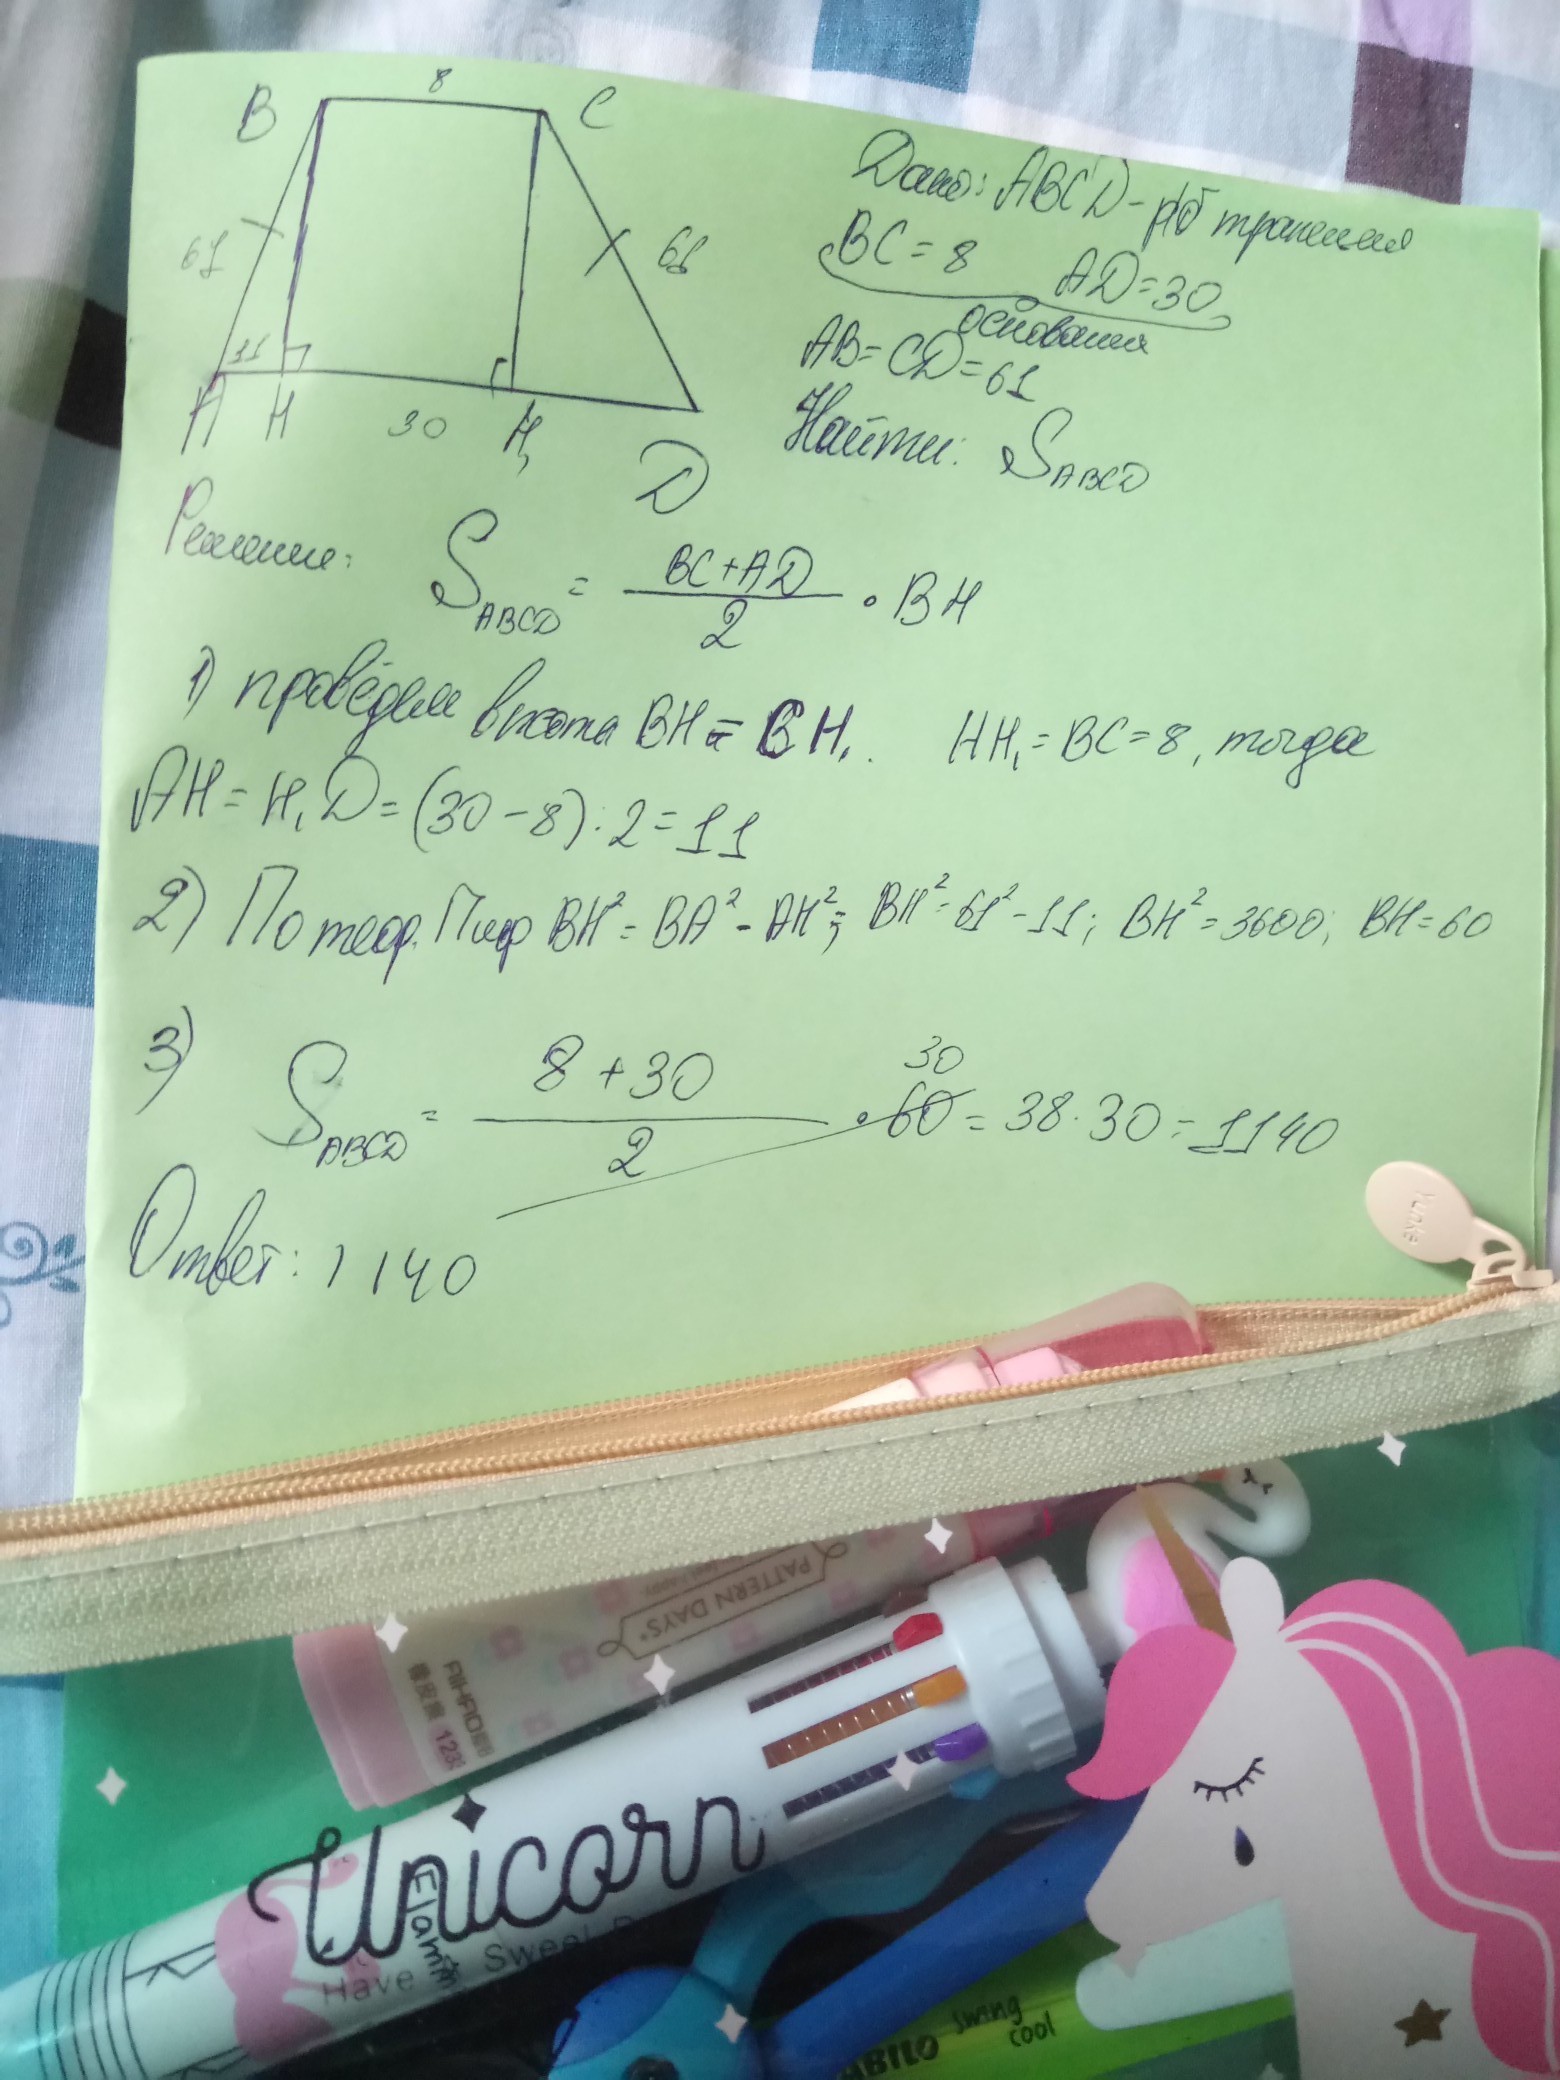 8
B
C
61
61
11
A
H
30
H₁
D
Дано: ABCD - р/б трапеция
BC = 8 AD = 30
основания
AB = CD = 61
Найти: S ABCD
Решение:
S ABCD = BC + AD / 2 · BH
1) проведём высота BH = CH₁. HH₁ = BC = 8, тогда
AH = H₁D = (30 - 8) : 2 = 11
2) По теор. Пиф BH² = BA² - AH²; BH² = 61² - 11; BH² = 3600; BH = 60
30
3) S ABCD = 8 + 30 / 2 · 60 = 38 · 30 = 1140
Ответ: 1140
PATTERN DAYS
AIHAO
橡皮膏
Unicorn
Elam
Have Sweet
swing
cool
ABILO